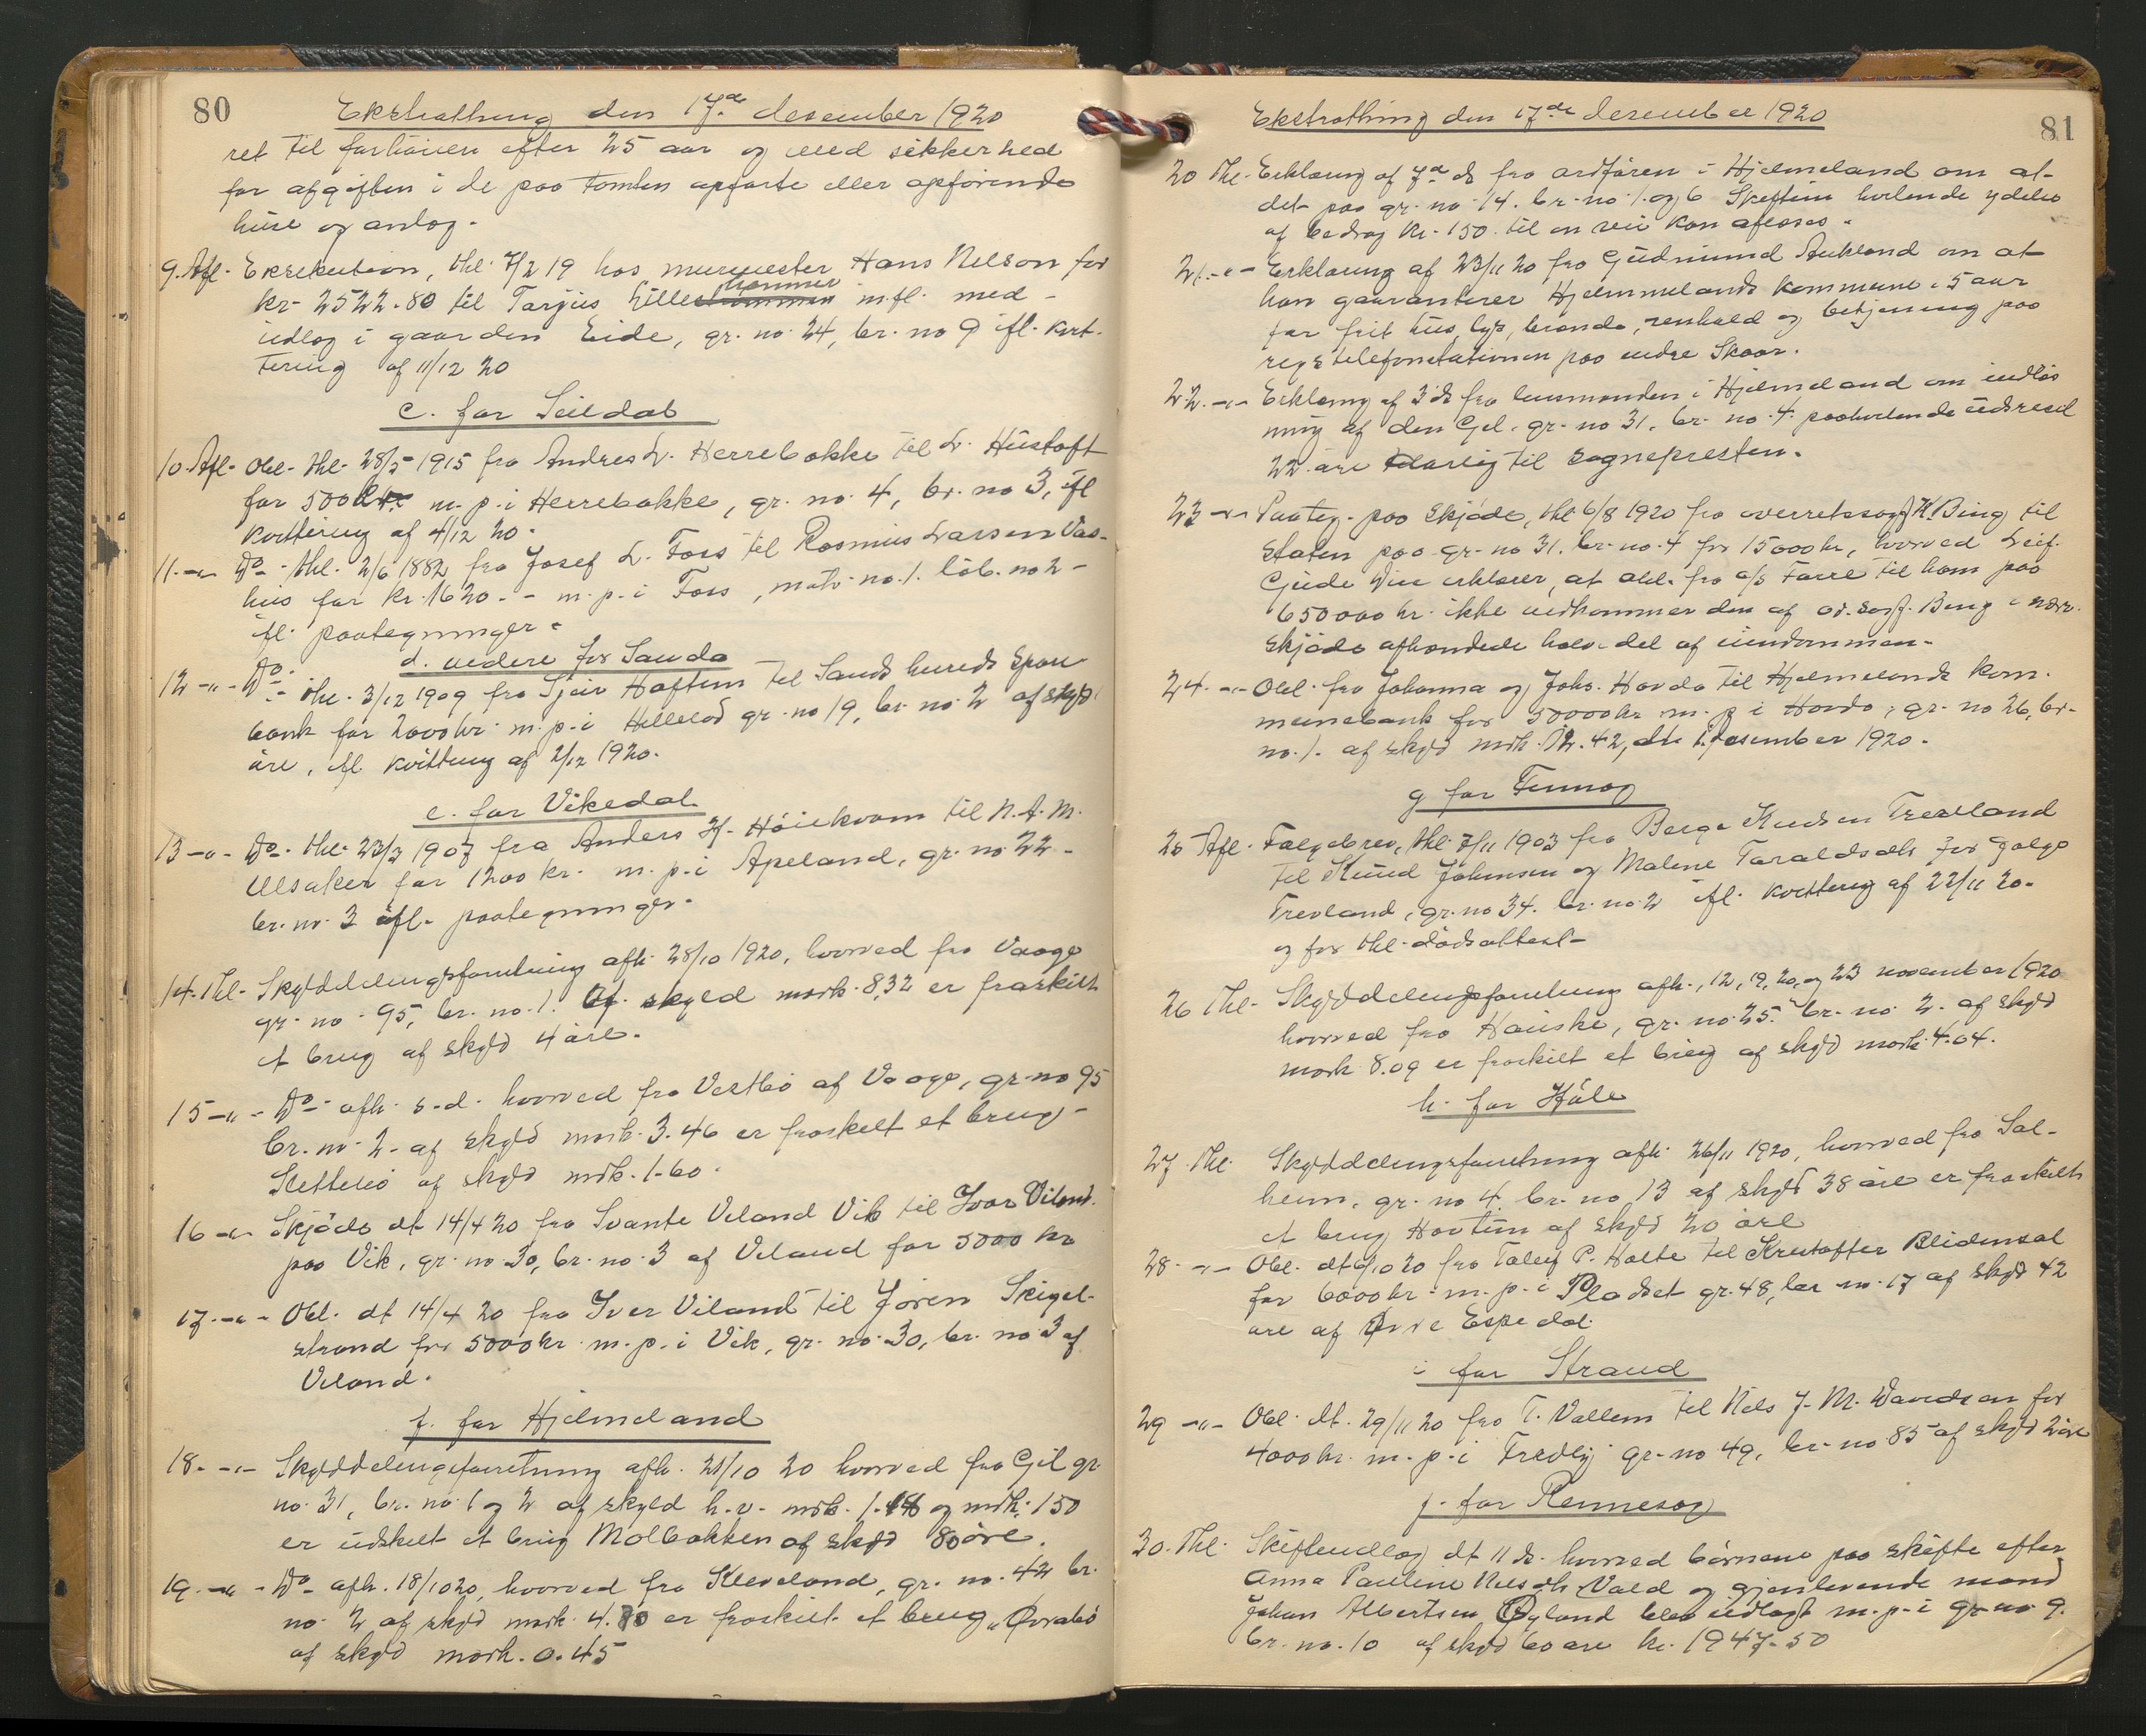 80
Ekstrathing den 17de desember 1920
ret til forhøien efter 25 aar og med sikkerhed
for afgiften i de paa tomten opførte eller opførende
huse og anlæg.
9. Afl. Eksekution, thl. 7/2 19 hos murmester Hans Nelson for
hammer
kr. 2522.80 til Tarjus Lillehammer m.fl. med
udlæg i gaarden Eide, gr. no. 24, br. no 9 ifl. kvit-
tering af 11/12 20
c. for Suldal
10. Afl. Obl. thl. 28/5 1915 fra Andres L. Herrebakke til L. Hustoft
for 500 kr. m. p. i Herrebakke, gr. no. 4, br. no 3, ifl
kvittering af 4/12 20.
11. -"- Do. thl. 2/6 1882 fra Josef L. Foss til Rasmus Larsen Vas-
hus for kr. 1620.- m. p. i Foss, matr. no. 1. løb. no 2
ifl. paategninger.
d. videre for Sauda
12 -"- Do. thl. 3/12 1909 fra Sjur Haftun til Sands hereds Spare
bank for 2000 kr. m. p. i Hellelod gr. no 19, br. no. 2 af skyld
øre, ifl. kvittering af 2/12 1920.
e. for Vikedal
13 -"- Do. thl. 23/3 1907 fra Anders H. Høiekvam til N. A. M.
Ulsaker for 1200 kr. m. p. i Apeland, gr. no 22
br. no. 3 ifl. paategninger.
14. Thl. Skylddelingsforretning afh. 28/10 1920, hvorved fra Vaage
gr. no. 95, br. no. 1. af skyld mark. 8,32 er fraskilt
et brug af skyld 4 øre.
15 -"- Do. afh. s.d. hvorved fra Vestbø af Vaage, gr. no 95
br. no. 2. af skyld mark. 3.46 er fraskilt et brug
Slettebø af skyld mrk. 1.60.
16 -"- Skjøde dt 14/4 20 fra Svante Viland Vik til Ivar Viland.
paa Vik, gr. no. 30, br. no. 3 af Viland for 5000 kr
17. -"- Obl. dt 14/4 20 fra Iver Viland til Jøren Skigel-
strand for 5000 kr. m. p. i Vik, gr. no. 30, br. no. 3 af
Viland.
f. for Hjelmeland
18. -"- Skylddelingsforretning afh. 21/10 20 hvorved fra Gil gr.
no. 31, br. no. 1 og 2 af skyld h.v. mrk. 1.48 og mrk. 150
er udskilt et brug Molbakken af skyld 80 øre.
19. -"- Do. afh. 18/10 20, hvorved fra Kleveland, gr. no. 42 br.
no. 2 af skyld mark. 4.80 er fraskilt et brug "Øvrabø
af skyld mark. 0.45
81
Ekstrathing den 17de desember 1920
20 Thl. Erklæring af 7de ds fra ordføren i Hjelmeland om at
det paa gr. no 14. br. no 1. og 6 Skeftun hvilende ydelse
af bedrag kr. 150. til en vei kan afløses.
21. -"- Erklæring af 23/11 20 fra Gudmund Aukland om at
han gaaranterer Hjelmmelands kommune i 5 aar
for frit hus, lys, brænde, renhold og betjening paa
rigstelefonstationen paa indre Skaar.
22. -"- Erklæring af 3 ds fra lensmanden i Hjelmeland om indløs
ning af den Gil. gr. no 31, br. no. 4. paahvilende
22 øre aarlig til sognepresten.
23 -"- Paateg. paa skjøde, thl 6/8 1920 fra overretssagf K. Bing til
staten paa gr. no 31. br. no. 4 for 15000 kr, hvorved Leif
Gude Due erklærer, at obl. fra a/s Tarre til ham paa
650000 kr. ikke vedkommer den af o.r.sagf. Bing i nævn.
skjøde afhændede halvdel af eiendommen.
24. -"- Obl. fra Johanna og Johs. Havda til Hjelmelands kom.
munebank for 50000 kr m. p i Havda, gr. no 26, br.
no. 1. af skyld mrk. 12.42, dt. 1. desember 1920.
g for Finnøy
25 Afl. Følgebrev, thl. 7/11 1903 fra Børge Knudsen Trevland
til Knud Johnsen og Malene Taraldsdtr for Følge
Trevland, gr. no 34. br. no. 2 ifl. kvittering af 22/11 20.
og for thl. dødsattest.
26 Thl. Skylddelingsforretning afh., 12, 19, 20, og 23 november 1920
hvorved fra Hauske, gr. no. 25. br. no 2. af skyld
mark 8.09 er fraskilt et brug af skyld mark. 4.04.
h. for Høle
27. Thl. Skylddelingsforretning afh. 26/11 1920, hvorved fra Sol-
heim, gr. no 4. br. no 13 af skyld 38 øre er fraskilt
et brug Hovtun af skyld 20 øre
28. -"- Obl. dt 6/10 20 fra Tollef P. Halte til Kristoffer Blidensol
for 6000 kr. m. p. i Pladset gr. 48, br no. 17 af skyld 42
øre af Øvre Espedal.
i for Strand
29 -"- Obl. dt. 29/11 20 fra T. Vallem til Nils J. M. Davidsen for
4000 kr. m. p. i Fredly gr. no 49, br. no 85 af skyld 2 øre
j. for Rennesøy
30. Thl. Skifteudlæg dt 11 ds. hvorved børnene paa skifte efter
Anna Pauline Nilsdtr Vald og gjenlevende mand
Johan Albertsen Øyland blev udlagt m. p. i gr. no 9.
br. no. 10 af skyld 60 øre kr. 1947.50